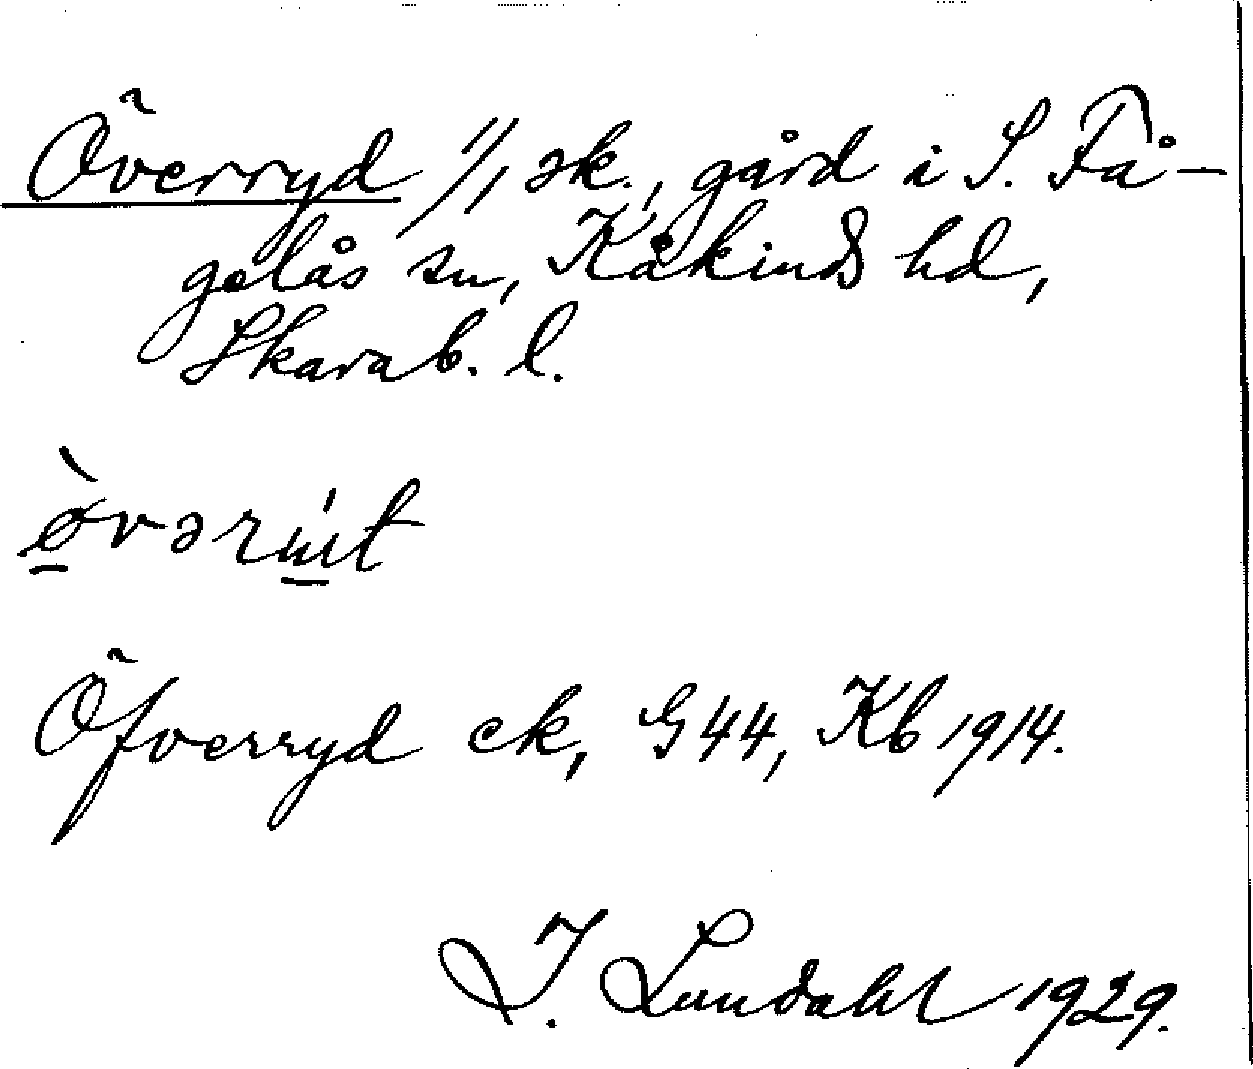 Överryd 1/1 sk., gård i S. Få-
gelås sn, Kåkinds hd,
Skarab. l.
Öfverryd ek, G 44, Kb 1914.
I. Lundahl 1929.